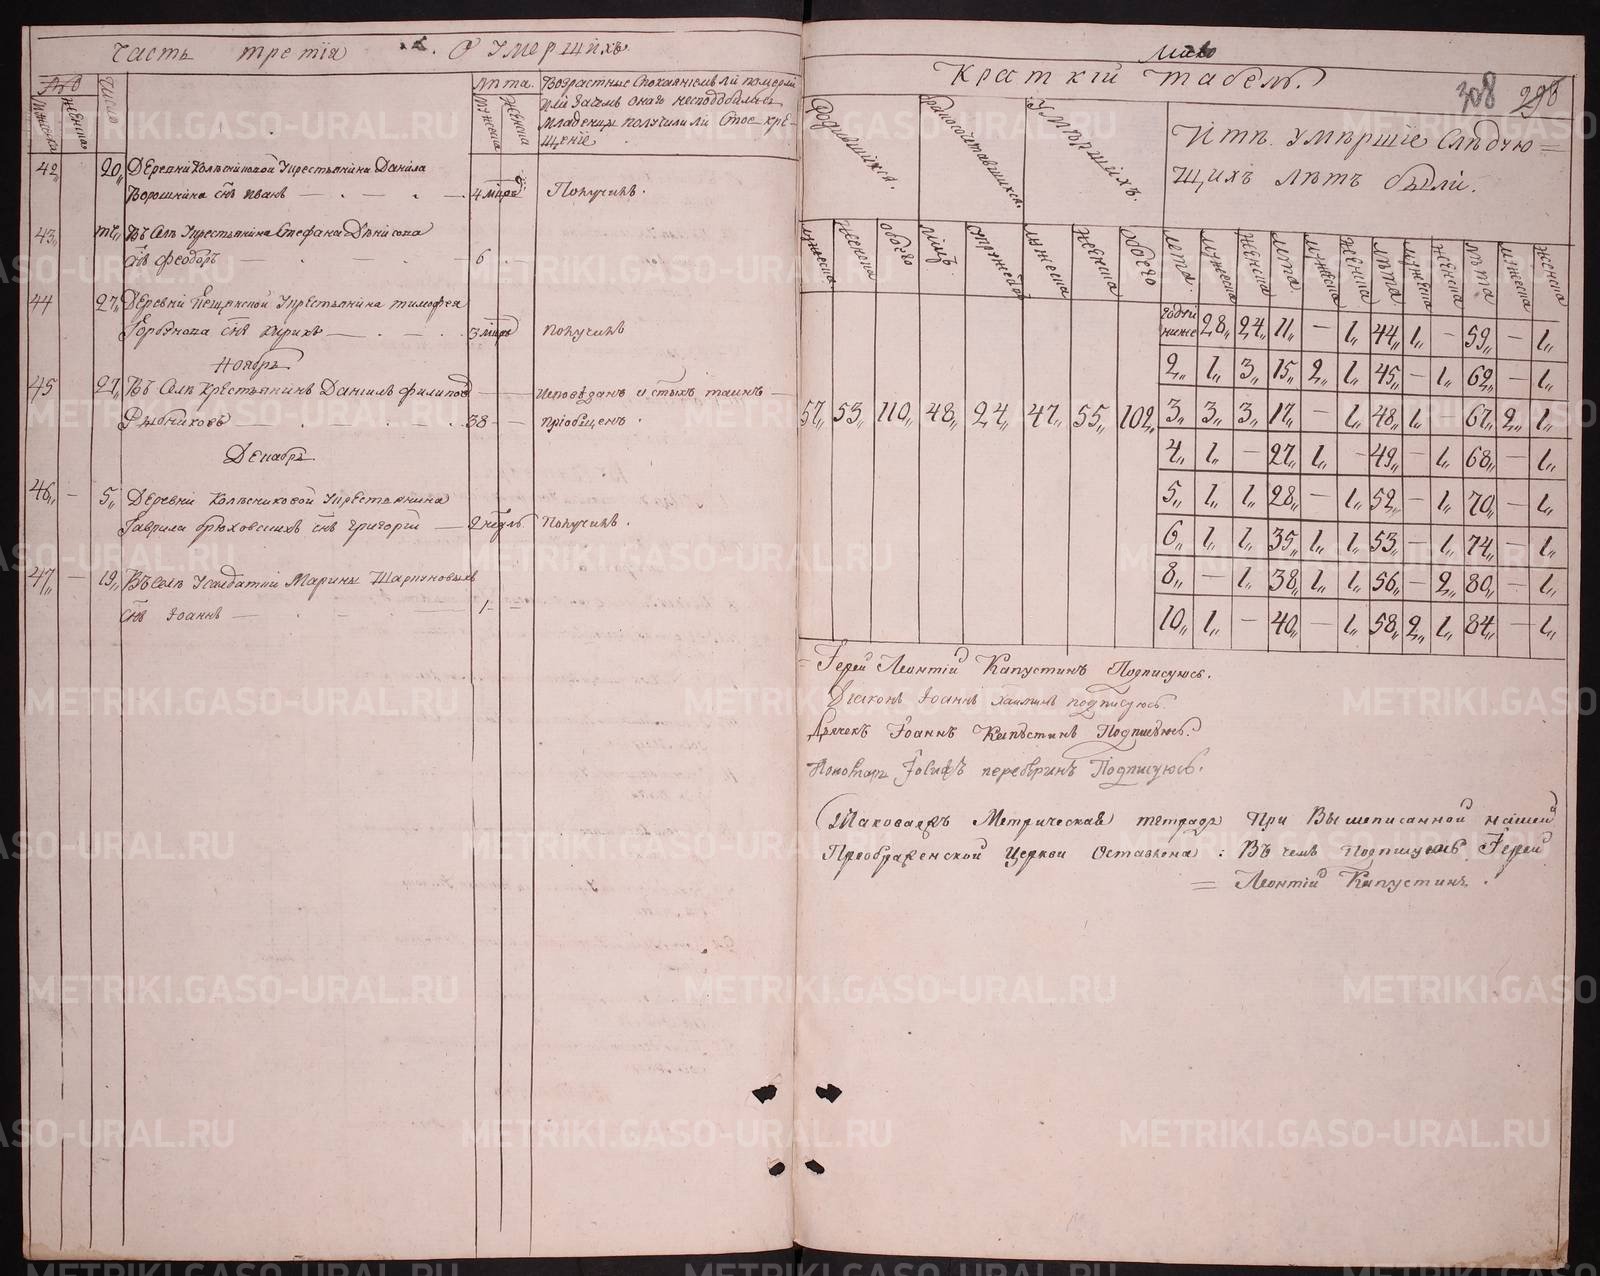 Часть третїя О Умершихъ
№
Число
Мужеска
Женска
Лѣта.
Мужеска
Женска
Возрастные спокаянїемъ ли померли
или зачемъ онаго несподобились,
Младенцы получили ли Стое кре-
щенїе
42, 20, Деревни Колѣсниковой Крестьянина Данила
Ворошнина снъ Иванъ 4 мцовъ Получилъ.
43, тъ, Въ Селѣ Крестьянина Стефана Денисова
снъ Феодоръ 6
44 27, Деревни Пещанской Крестьянина тимофея
Горбунова снъ Кирикъ 3 мцовъ получилъ
Ноябрь
45 27, Въ Селѣ Крестьянинъ Данилъ филиповъ Исповѣданъ и стыхъ таинъ
Рыбниковъ 38 прїобщенъ.
Декабрь
46, 5, Деревни Колѣсниковой Крестьянина
Гаврила брюховскихъ снъ григорїй 2 недѣль Получилъ.
47, 19, Въ селѣ Усалдатки Марины Шарпуновыхъ
снъ Іоаннъ 1
Краткїй табель.
308 298
Родившихся.
бракосочетавшихся.
Умершихъ.
Изъ Умершїе Слѣдую=
щихъ лѣтъ были.
мужеска женска обоего лицъ. супружествъ мужеска женска обоего лѣта. мужеска женска лѣта. мужеска женска лѣта мужеска женска лѣта мужеска женска
годъ и ниже 28, 24, 11, — 1, 44, 1, — 59, — 1,
2, 1, 3, 15, 2, 1, 45, — 1, 62, — 1,
57, 53, 110, 48, 24, 47, 55, 102, 3, 3, 3, 17, — 1, 48, 1, — 67, 2, 1,
4, 1, — 27, 1, — 49, — 1, 68, — 1,
5, 1, 1, 28, — 1, 52, — 1, 70, — 1,
6, 1, 1, 35, 1, 1, 53, — 1, 74, — 1,
8, — 1, 38, 1, 1, 56, — 2, 80, — 1,
10, 1, — 40, — 1, 58, 2, 1, 84, — 1,
Іерей Леонтїй Капустинъ Подписуюсь.
Дїаконъ Іоаннъ подписуюсь.
Дьячекъ Іоаннъ Капустинъ Подписуюсь.
Пономарь Іосифъ Подписуюсь.
Таковаяжъ Метрическая тетрадь при Вышеписанной нашей
Преображенской Церкви Оставлена: Въ чемъ подписуюсь Іерей
= Леонтїй Капустинъ.
METRIKI.GASO-URAL.RU